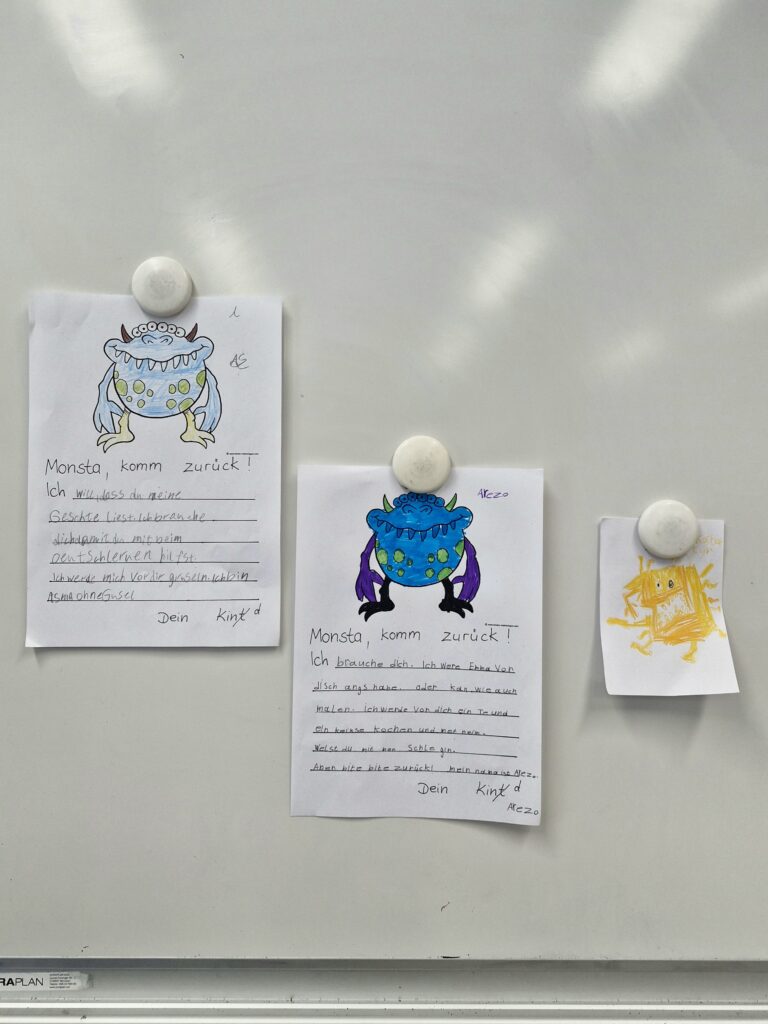 Monsta, komm zurück!
Ich will, dass du meine
Geschte liest. Ich brauche
dich damit du mit beim
Deutschlernen hilfst.
Ich werde mich vor dir gruseln. Ich bin
Asma ohne Gusel
Dein Kint d
Arezo
Monsta, komm zurück!
Ich brauche dich. Ich were Ehka vor
disch angs habe. oder kan wie auch
malen. Ich werde vor dich ein Te und
ein keikse kochen und
Welst du mit
Aben bite bite zurück! mein nama ist Arezo.
Dein Kint d
Arezo
RAPLAN